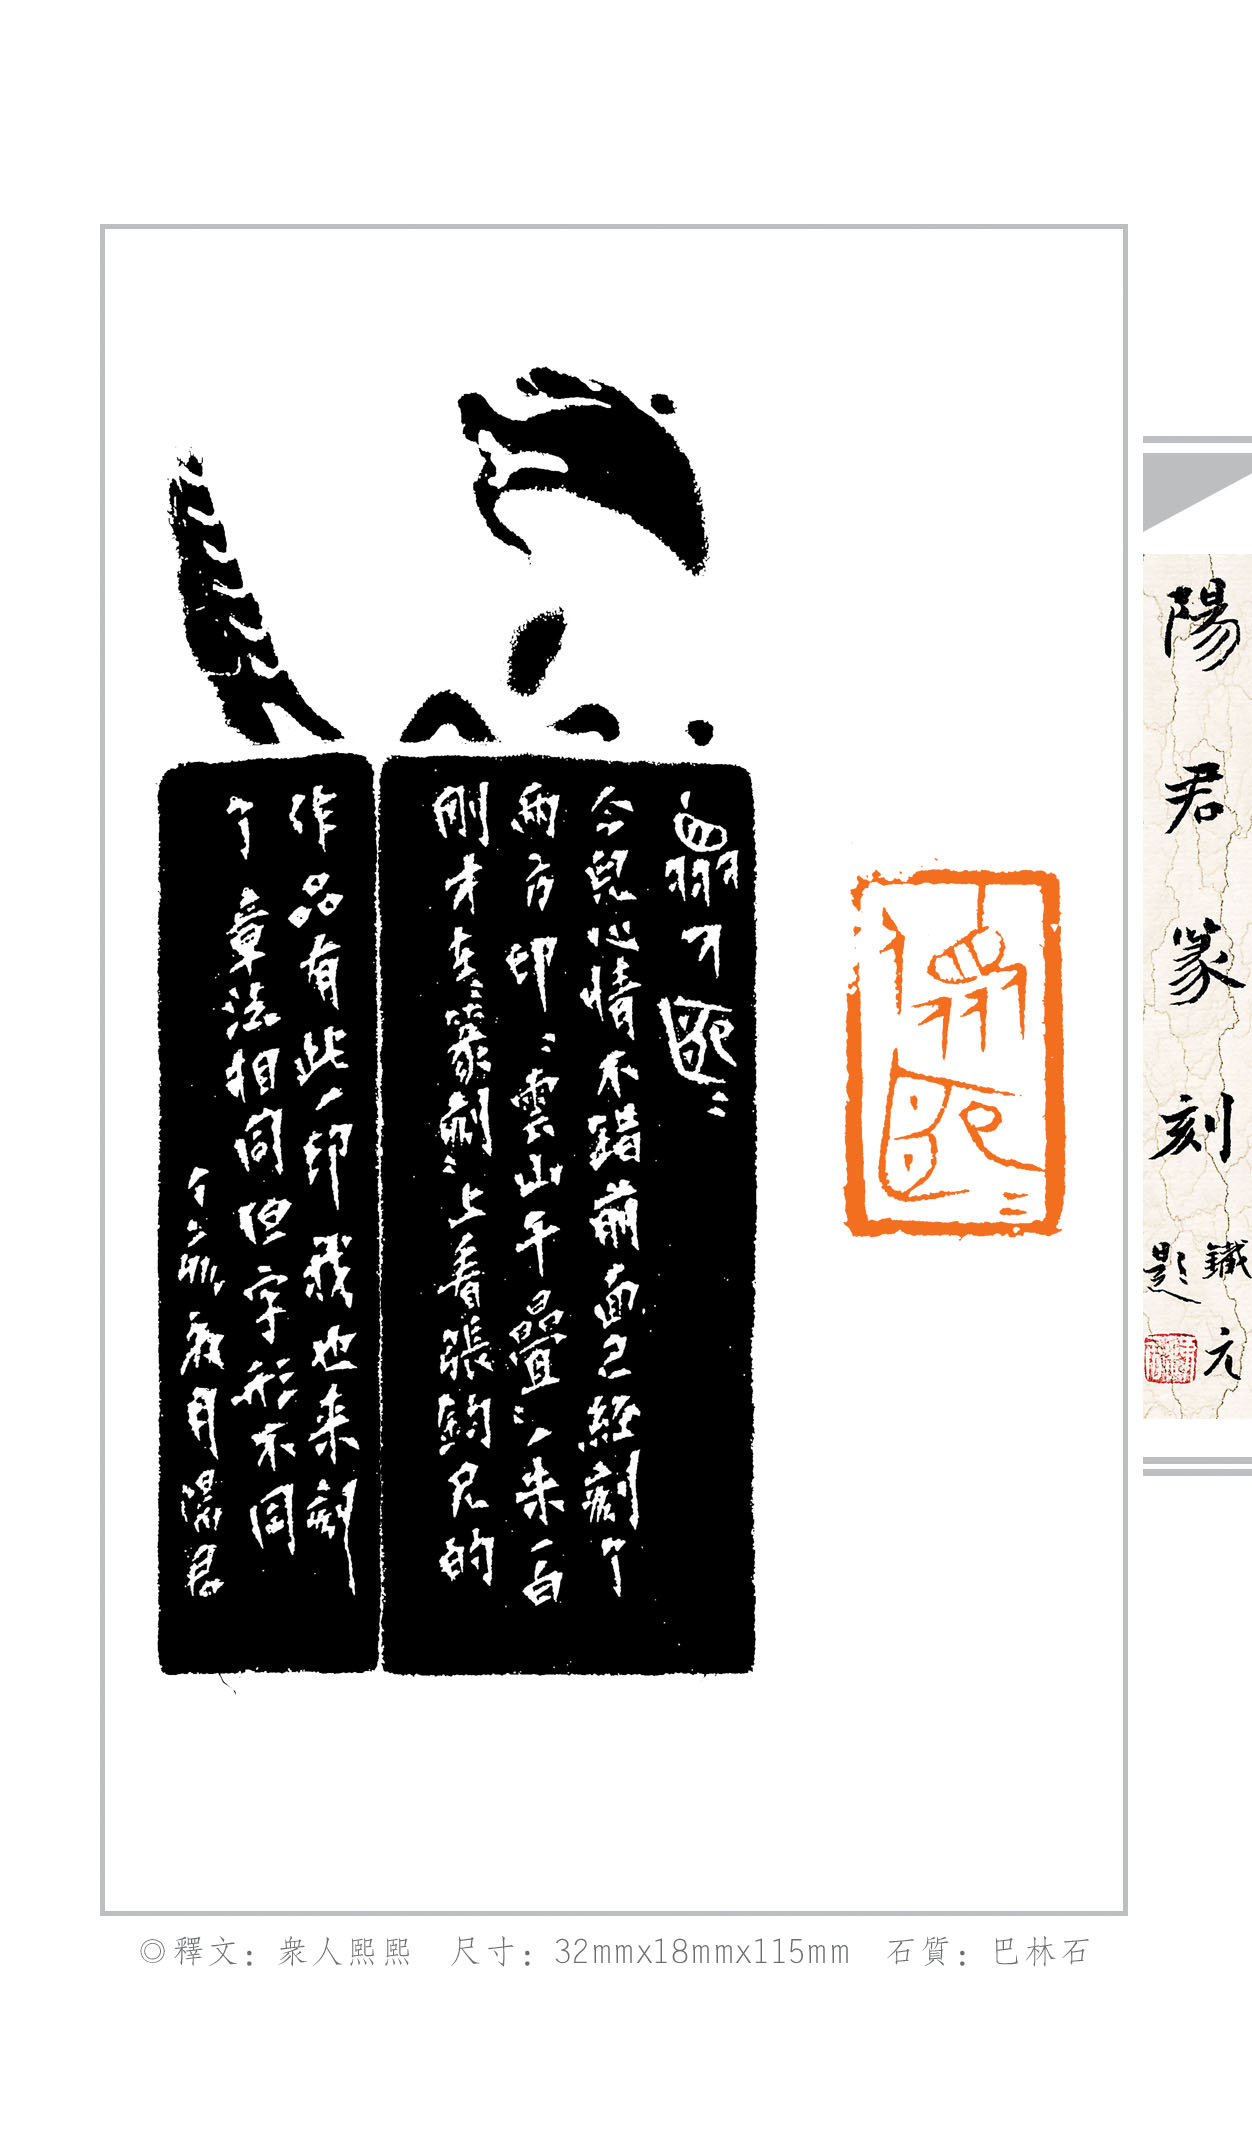 眾人熙〻
今兒心情不錯前面已經刻了
兩方印〻雲山千疊〻朱白
剛才在〻篆刻〻上看張鈞兄的
作品有此一印我也来刻
了章法相同但字形不同
夜月陽君
眾人熙〻
陽君篆刻
鐵元
題
◎釋文：衆人熙熙　尺寸：32mmx18mmx115mm　石質：巴林石